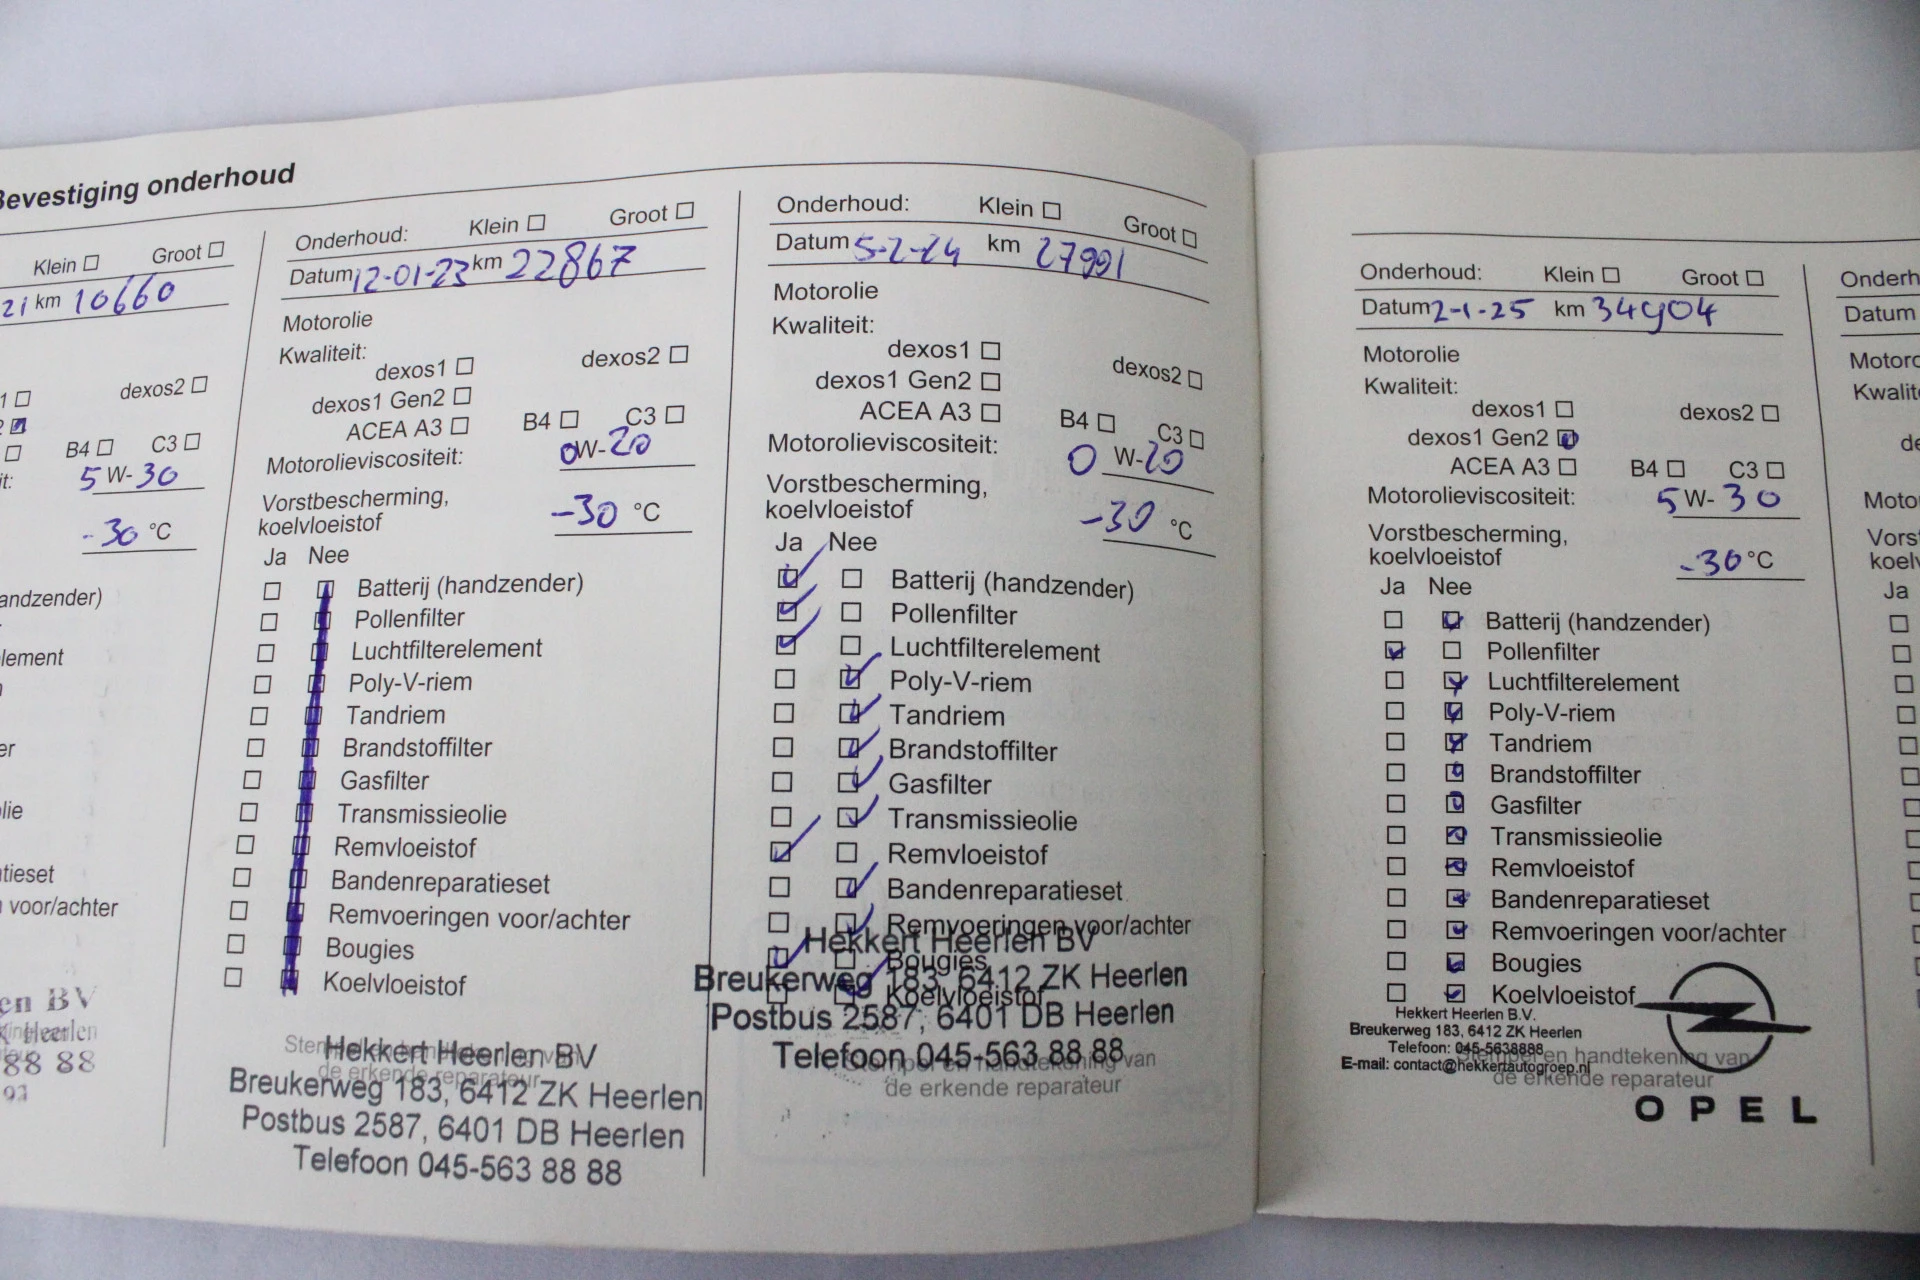 Bevestiging onderhoud
Klein Groot
21 km 10660
dexos2
B4 C3
5 W-30
-30 °C
andzender)
Onderhoud: Klein Groot
Datum 12-01-23 km 22867
Motorolie
Kwaliteit:
dexos1 dexos2
dexos1 Gen2
ACEA A3 B4 C3
Motorolieviscositeit: 0W-20
Vorstbescherming,
koelvloeistof -30 °C
Ja Nee
Batterij (handzender)
Pollenfilter
Luchtfilterelement
Poly-V-riem
Tandriem
Brandstoffilter
Gasfilter
Transmissieolie
Remvloeistof
Bandenreparatieset
Remvoeringen voor/achter
Bougies
Koelvloeistof
Hekkert Heerlen BV
Breukerweg 183, 6412 ZK Heerlen
Postbus 2587, 6401 DB Heerlen
Telefoon 045-563 88 88
Onderhoud: Klein Groot
Datum 5-2-24 km 27991
Motorolie
Kwaliteit:
dexos1 dexos2
dexos1 Gen2
ACEA A3 B4 C3
Motorolieviscositeit: 0 W-20
Vorstbescherming,
koelvloeistof -30 °C
Ja Nee
Batterij (handzender)
Pollenfilter
Luchtfilterelement
Poly-V-riem
Tandriem
Brandstoffilter
Gasfilter
Transmissieolie
Remvloeistof
Bandenreparatieset
Remvoeringen voor/achter
Bougies
Koelvloeistof
Hekkert Heerlen BV
Breukerweg 183, 6412 ZK Heerlen
Postbus 2587, 6401 DB Heerlen
Telefoon 045-563 88 88
Stempel en handtekening van
de erkende reparateur
Onderhoud: Klein Groot
Datum 2-1-25 km 34904
Motorolie
Kwaliteit:
dexos1 dexos2
dexos1 Gen2
ACEA A3 B4 C3
Motorolieviscositeit: 5 W-30
Vorstbescherming,
koelvloeistof -30 °C
Ja Nee
Batterij (handzender)
Pollenfilter
Luchtfilterelement
Poly-V-riem
Tandriem
Brandstoffilter
Gasfilter
Transmissieolie
Remvloeistof
Bandenreparatieset
Remvoeringen voor/achter
Bougies
Koelvloeistof
Hekkert Heerlen B.V.
Breukerweg 183, 6412 ZK Heerlen
Telefoon: 045-5638888
E-mail: contact@hekkertautogroep.nl
Stempel en handtekening van
de erkende reparateur
OPEL
Datum
Ja